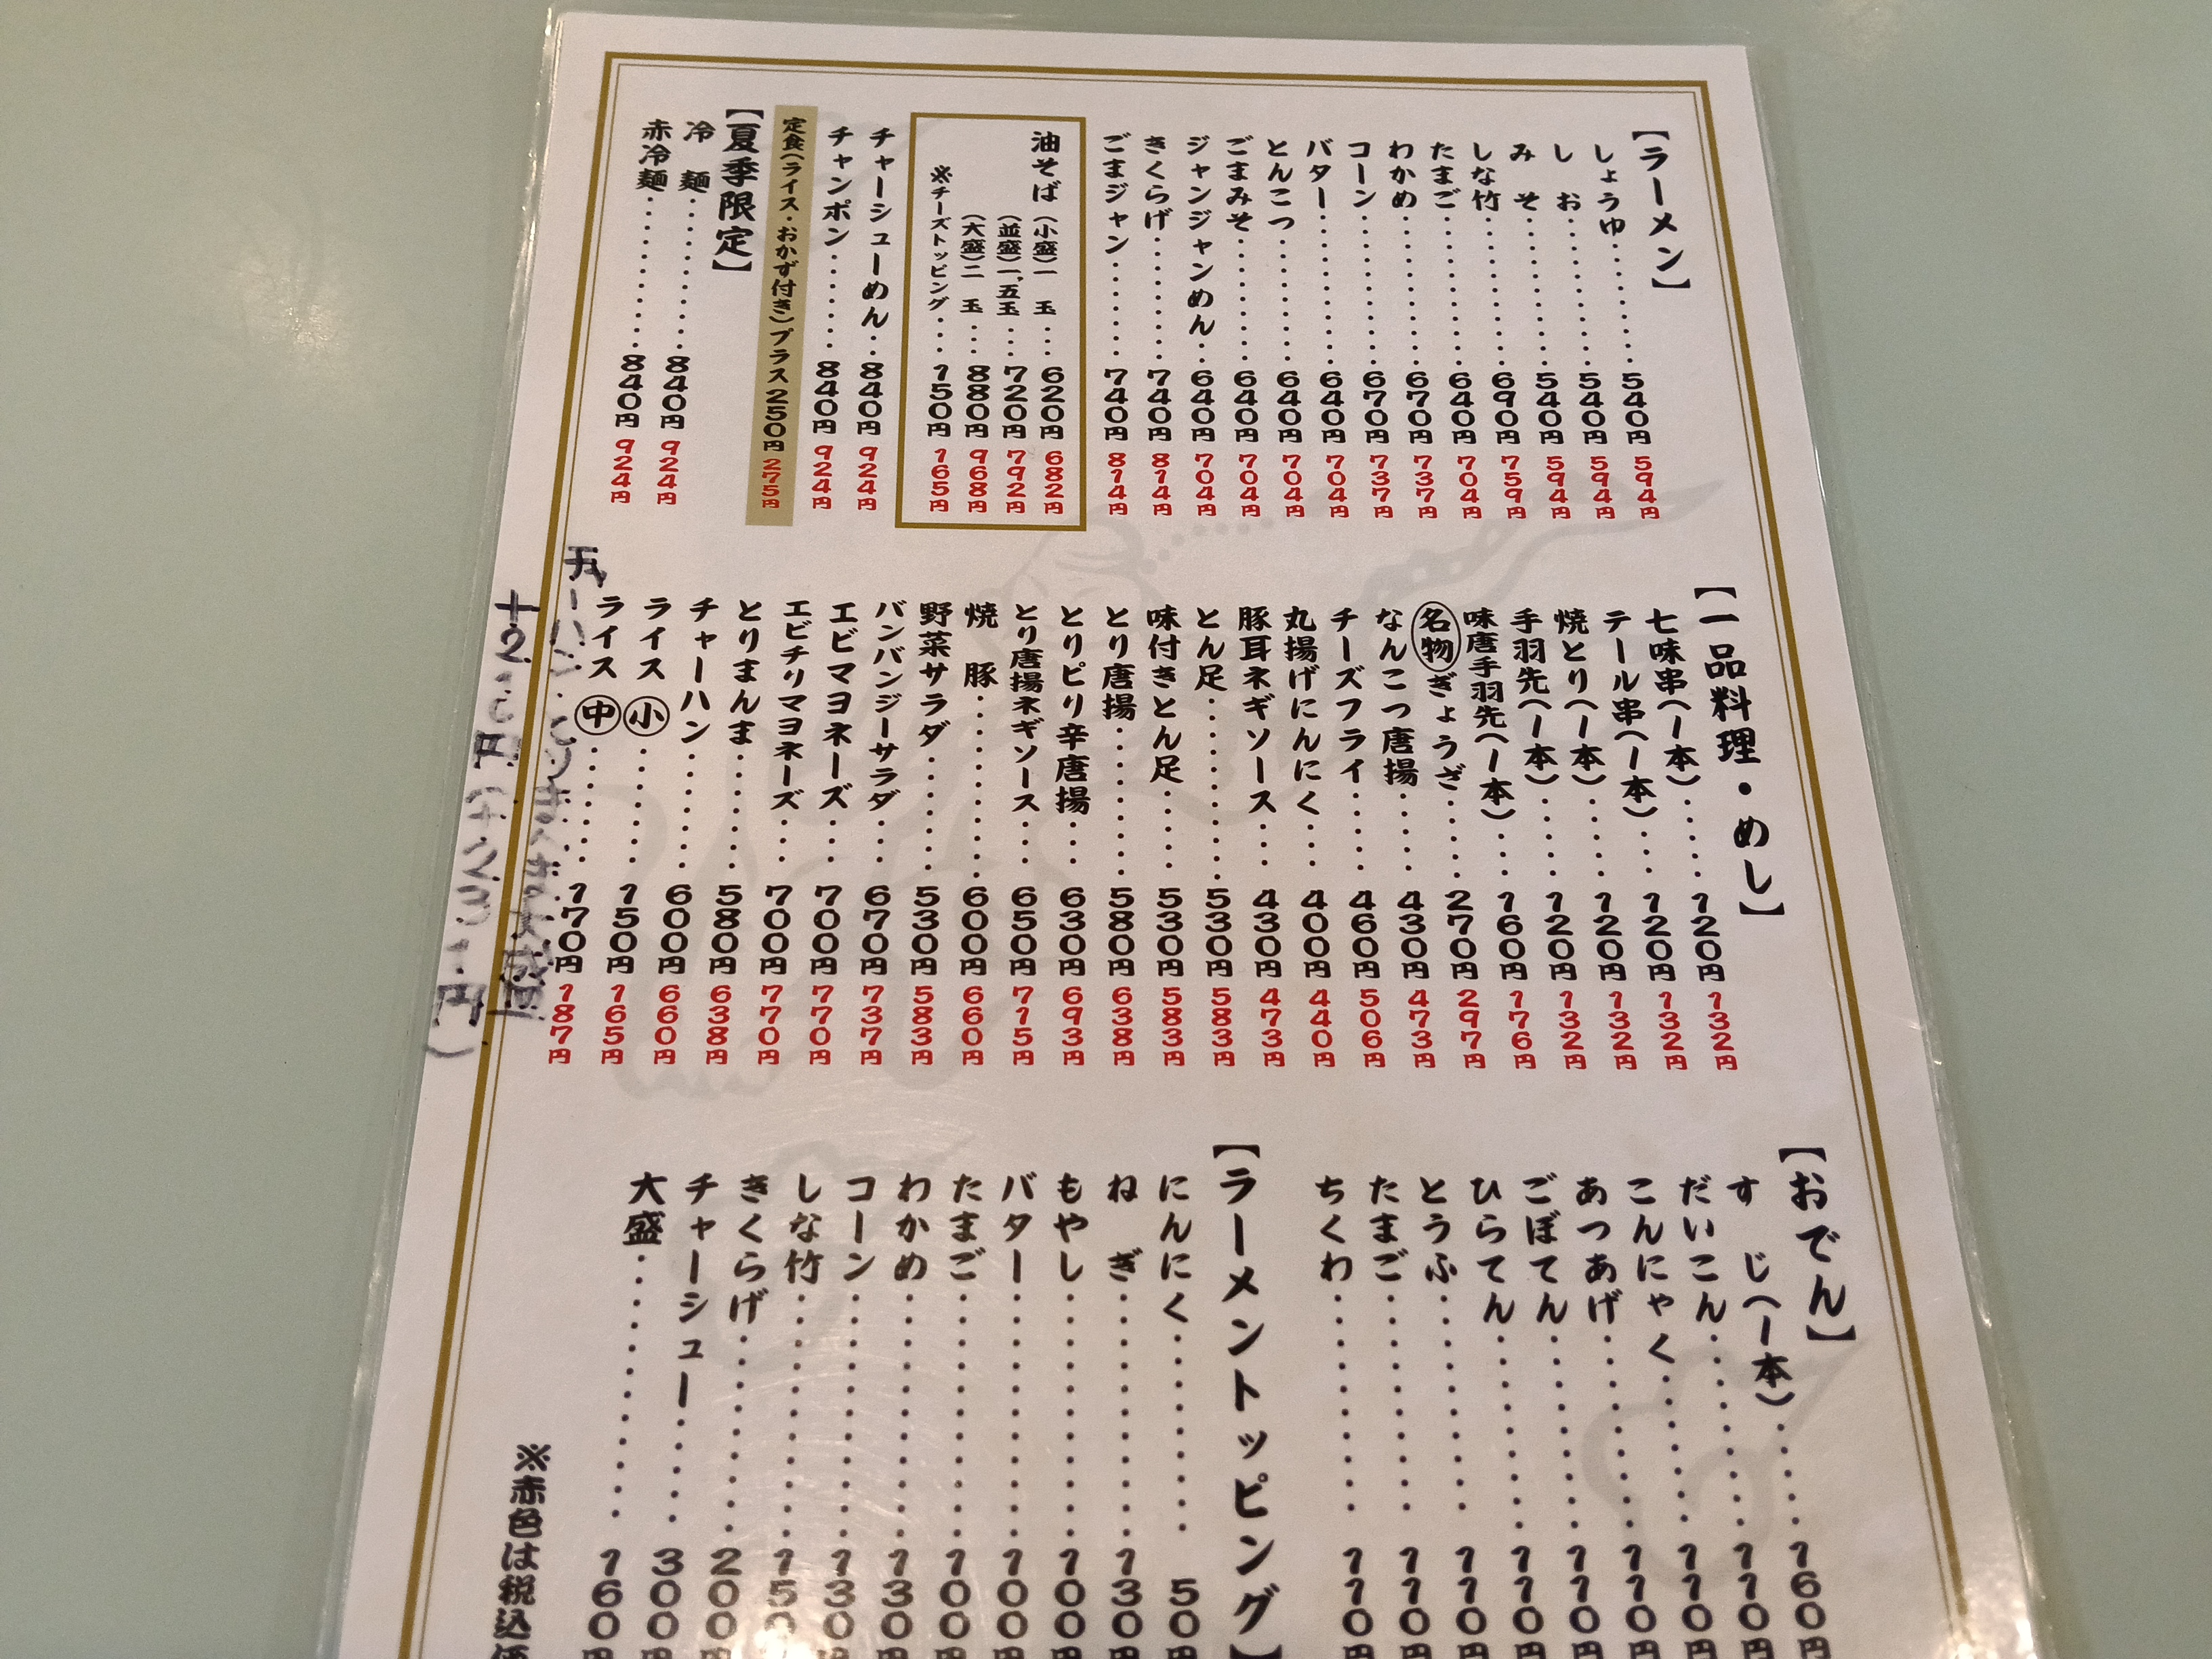 【ラーメン】
しょうゆ 540円 594円
しお 540円 594円
みそ 540円 594円
しな竹 690円 759円
たまご 640円 704円
わかめ 670円 737円
コーン 670円 737円
バター 640円 704円
とんこつ 640円 704円
ごまみそ 640円 704円
ジャンジャンめん 640円 704円
きくらげ 740円 814円
ごまジャン 740円 814円
油そば(小盛)一玉 620円 682円
(並盛)一、五玉 720円 792円
(大盛)二玉 880円 968円
※チーズトッピング 150円 165円
チャーシューめん 840円 924円
チャンポン 840円 924円
定食(ライス・おかず付き)プラス250円 275円
【夏季限定】
冷麺 840円 924円
赤冷麺 840円 924円
【一品料理・めし】
七味串(一本) 120円 132円
テール串(一本) 120円 132円
焼とり(一本) 120円 132円
手羽先(一本) 120円 132円
味唐手羽先(一本) 160円 176円
名物ぎょうざ 270円 297円
なんこつ唐揚 430円 473円
チーズフライ 460円 506円
丸揚げにんにく 400円 440円
豚耳ネギソース 430円 473円
とん足 530円 583円
味付きとん足 530円 583円
とり唐揚 580円 638円
とりピリ辛唐揚 630円 693円
とり唐揚ネギソース 650円 715円
焼豚 600円 660円
野菜サラダ 530円 583円
バンバンジーサラダ 670円 737円
エビマヨネーズ 700円 770円
エビチリマヨネーズ 700円 770円
とりまんま 580円 638円
チャーハン 600円 660円
ライス小 150円 165円
ライス中 170円 187円
【おでん】
すじ(一本) 160円
だいこん 110円
こんにゃく 110円
あつあげ 110円
ごぼてん 110円
ひらてん 110円
とうふ 110円
たまご 110円
ちくわ 110円
【ラーメントッピング】
にんにく 50円
ねぎ 130円
もやし 100円
バター 100円
たまご 100円
わかめ 130円
コーン 130円
しな竹 150円
きくらげ 200円
チャーシュー 300円
大盛 160円
※赤色は税込価